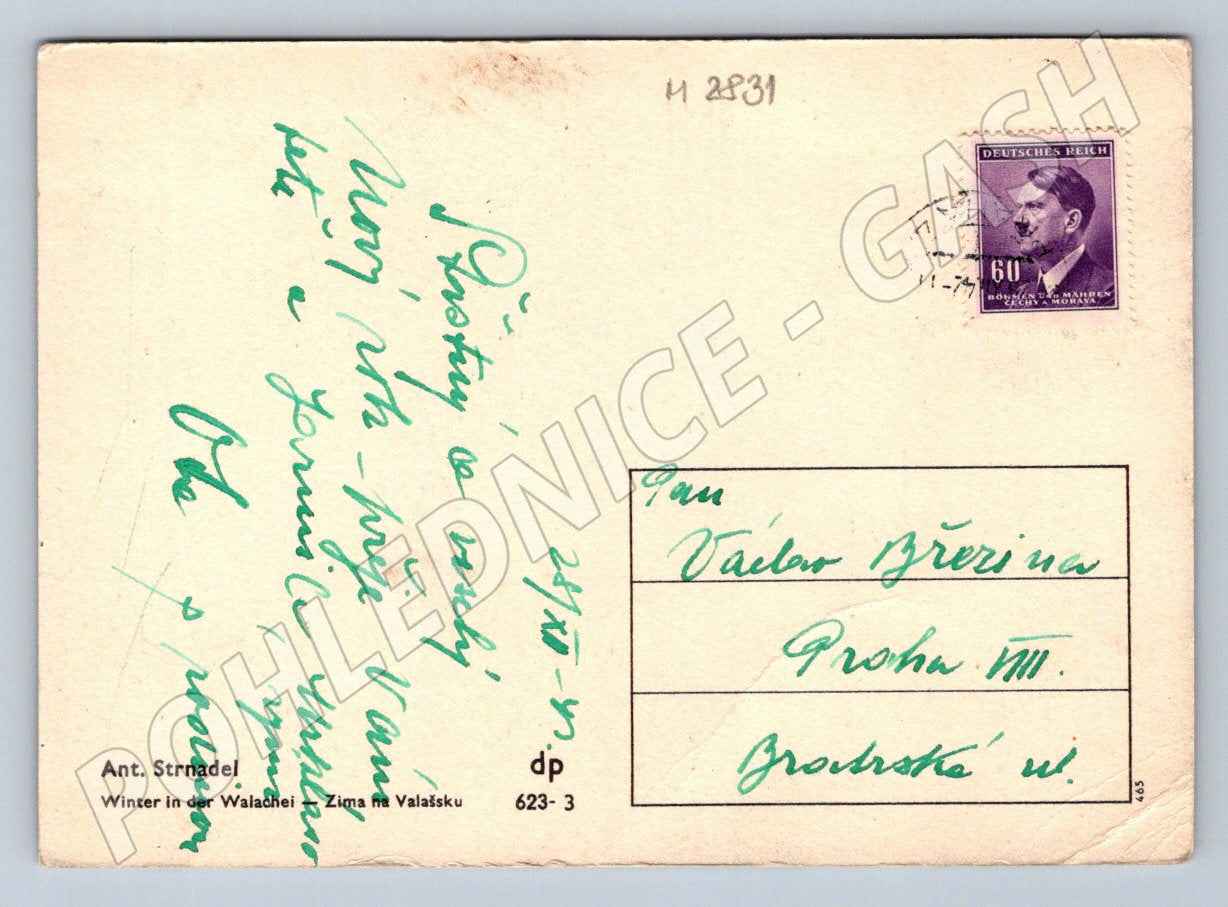 M 2831
DEUTSCHES REICH
60
BÖHMEN UND MÄHREN
ČECHY A MORAVA
28/XII - 
Šťastný a veselý
Nový rok - přeje Vám
teté a Jarmile
s rodinou
Pan
Václav Březina
Praha VIII.
Bratrská ul.
Ant. Strnadel
Winter in der Walachei — Zima na Valašsku
dp
623-3
465
POHLEDNICE - GASH